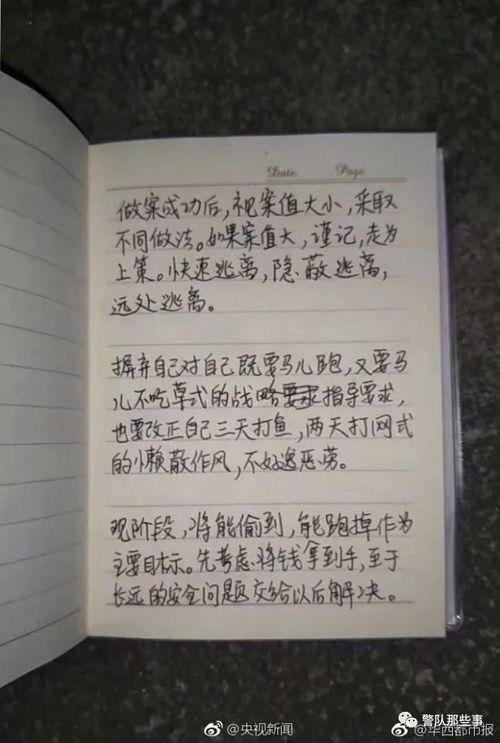 Date. Page.
做案成功后，视案值大小，采取
不同做法。如果案值大，谨记，走为
上策。快速逃离，隐蔽逃离，
远处逃离。
摒弃自己对自己既要马儿跑，又要马
儿不吃草式的战略要求指导要求，
也要改正自己三天打鱼，两天打网式
的懒散作风，不好逸恶劳。
现阶段，将能偷到，能跑掉作为
主要目标。先考虑将钱拿到手，至于
长远的安全问题交给以后解决。
警队那些事
@央视新闻
@华西都市报